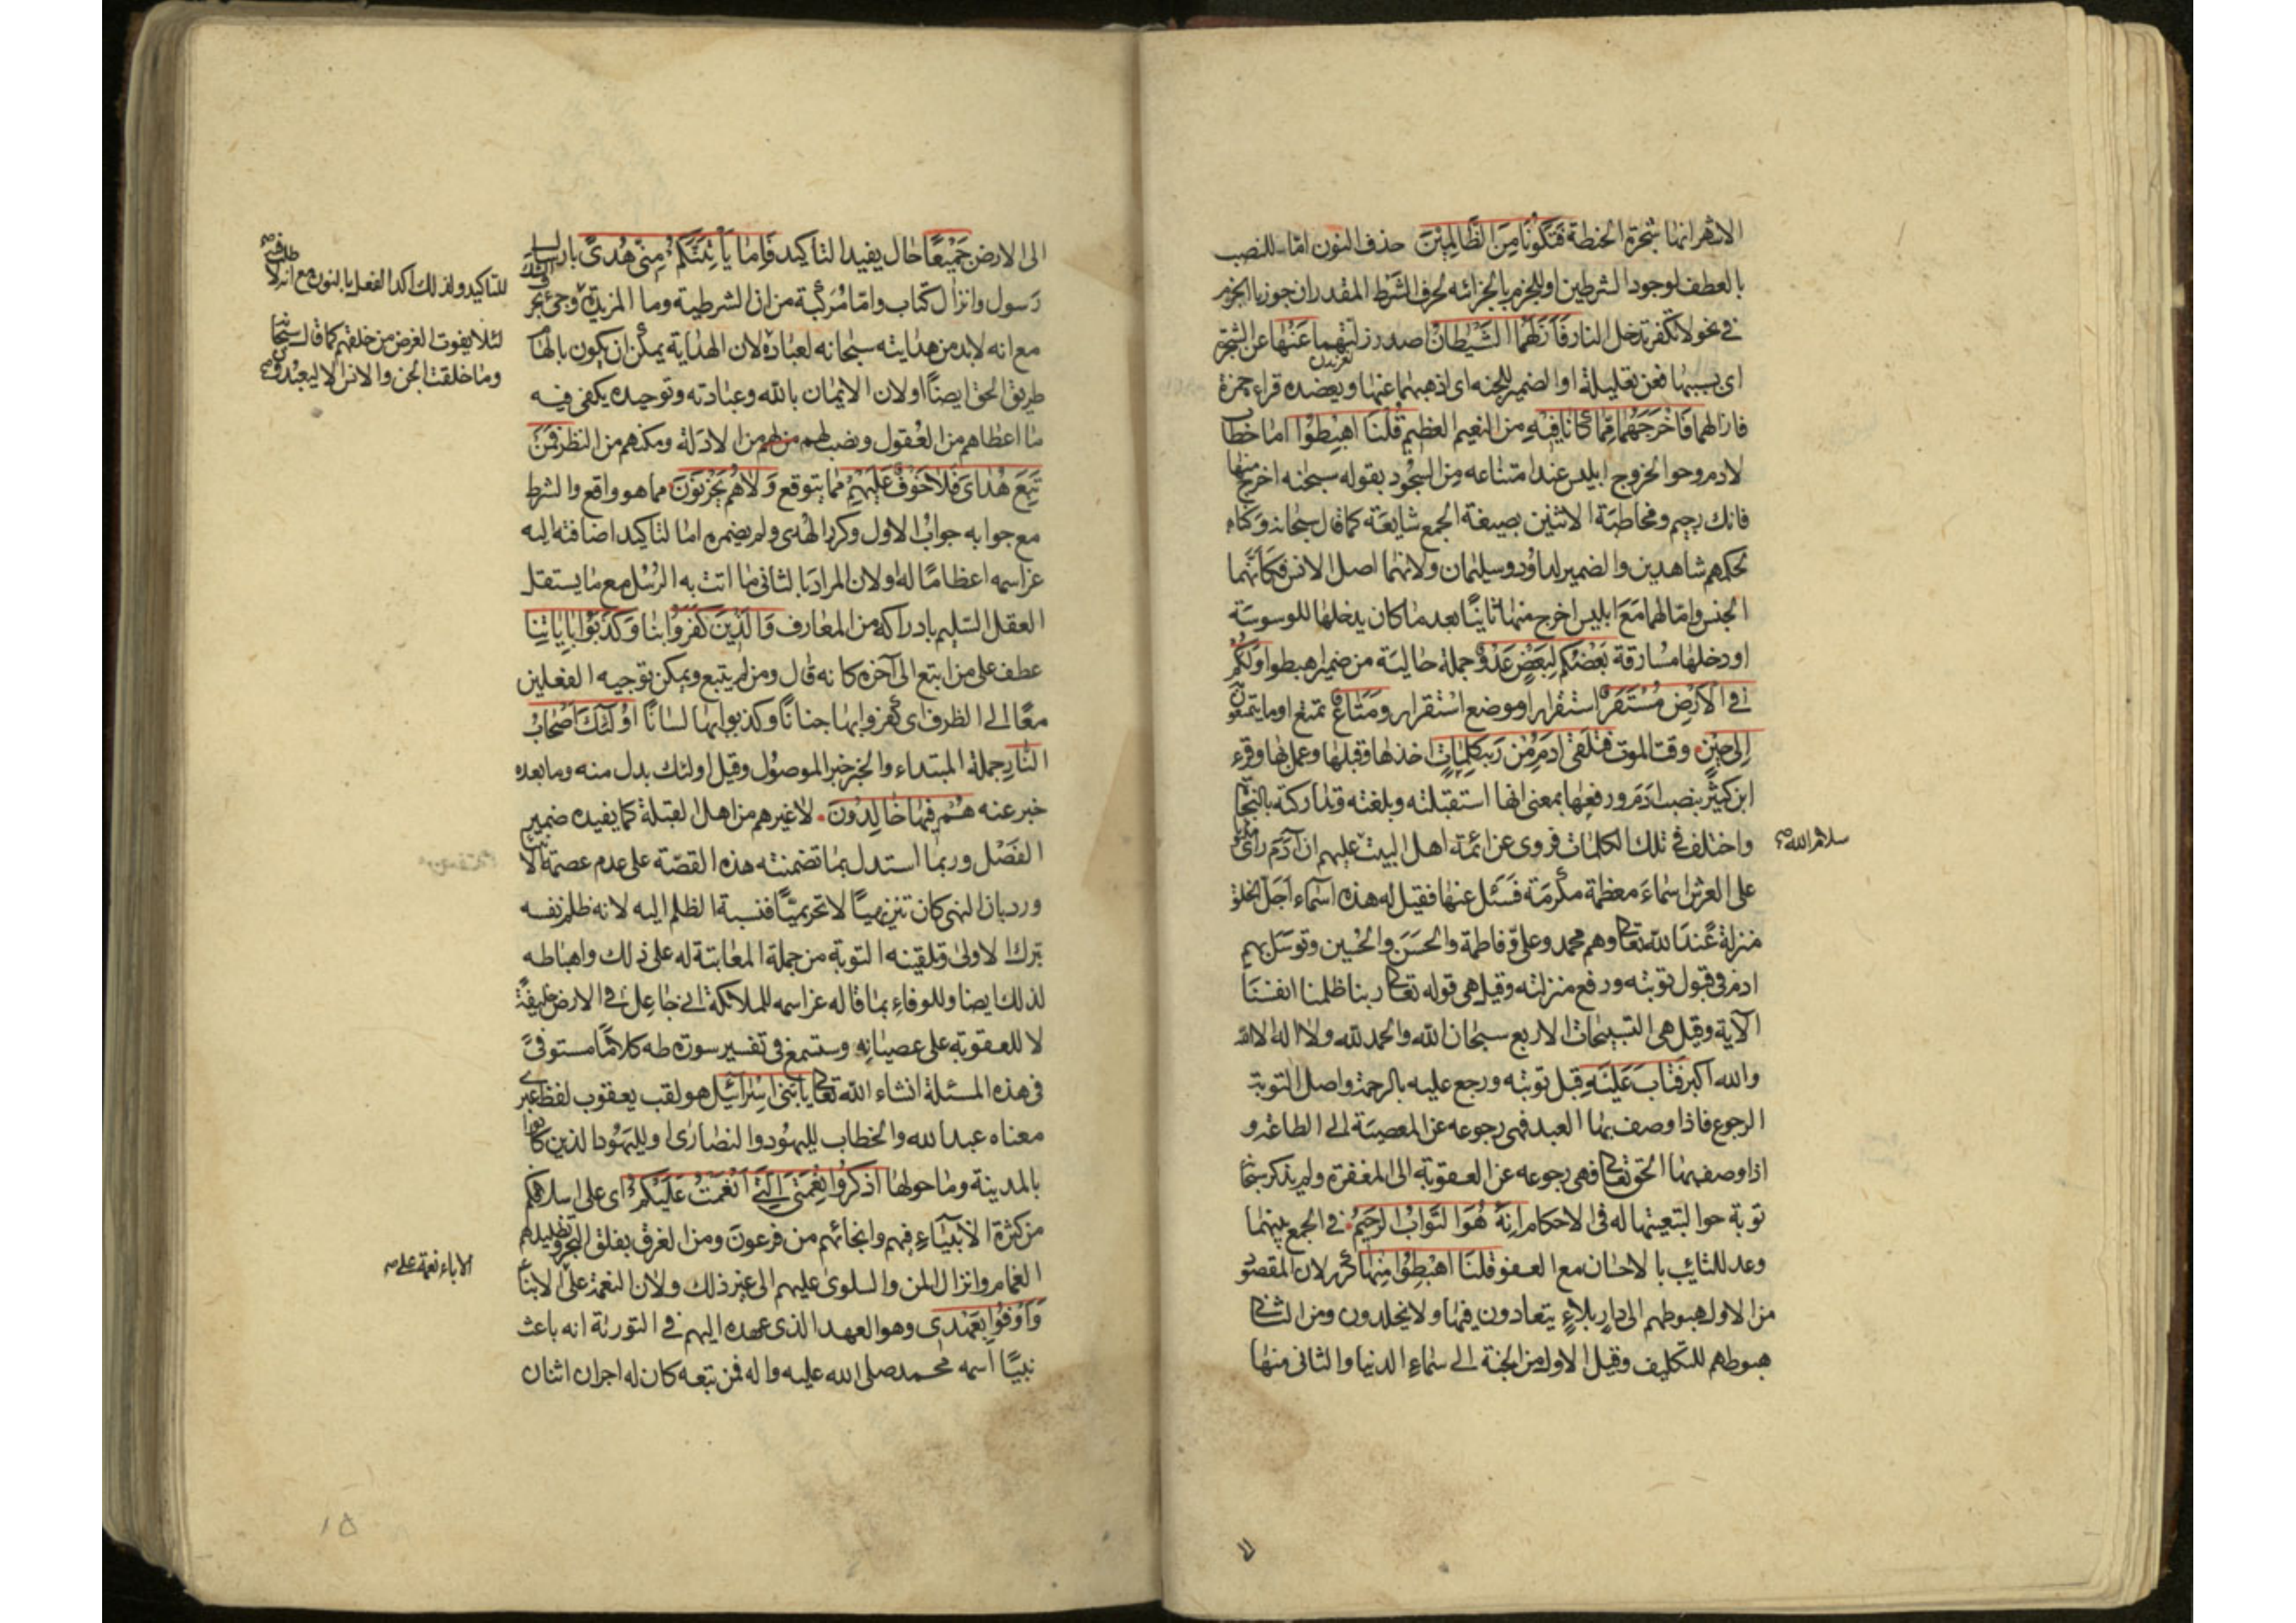 الاشهر انها شجرة الحنطة فَتَكُونَا مِنَ الظَّالِمِيْنَ حذف النون امّا للنصب
بالعطف لوجود الشرطين او للجزم بالجزائه لحرف الشرط المقدر ان جوزنا الجزم
في نحو لا تكفر تدخل النار فَاَزَلَّهُمَا الشَّيْطَانُ اصدر زلتهما عَنْهَا عن الشجرة
اى بسببها فعن تعليلية او الضمير للجنه اى اذهبهما عنها ويعضده قراءة حمزة
فازالهما فَاَخْرَجَهُمَا مِمَّا كَانَا فِيْهِ من النعيم العظيم قُلْنَا اهْبِطُوْا اما خطاب
لادم وحوا لخروج ابليس عند امتناعه من السجود بقوله سبحنه اخرج منها
فانك رجيم ومخاطبة الاثنين بصيغة الجمع شايعة كما قال سبحانه وكنا
لحكمهم شاهدين والضمير لداود وسليمان ولانهما اصل الانس فكانهما
الجنس وامّا لهما مع ابليس اخرج منها ثانيًا بعد ما كان يدخلها للوسوسة
او دخلها مسارقة بَعْضُكُمْ لِبَعْضٍ عَدُوٌّ جملة حالية من ضمير اهبطوا وَلَكُمْ
فِي الْاَرْضِ مُسْتَقَرٌّ استقرار او موضع استقرار وَمَتَاعٌ تمتع او ما يتمتعون
اِلٰى حِيْنٍ وقت الموت فَتَلَقّٰى اٰدَمُ مِنْ رَبِّهِ كَلِمَاتٍ اخذها وقبلها وعمل بها وقرء
ابن كثير بنصب ادم ورفعها بمعنى انها استقبلته وبلغته وتداركته بالنجاة
واختلف في تلك الكلمات فروى عن ائمة اهل البيت عليهم ان آدم راى
سلام الله
على العرش اسماء معظمة مكرمة فسئل عنها فقيل له هذه اسماء اجل الخلق
منزلة عند الله تعالى وهم محمد وعلى وفاطمة والحسن والحسين وتوسل بهم
ادم فى قبول توبته ورفع منزلته وقيل هى قوله تعالى ربنا ظلمنا انفسنا
الآية وقيل هى التسبيحات الاربع سبحان الله والحمد لله ولا اله الا الله
والله اكبر فَتَابَ عَلَيْهِ قبل توبته ورجع عليه بالرحمة واصل التوبة
الرجوع فاذا وصف بها العبد فهى رجوعه عن المعصية الى الطاعة و
اذا وصف بها الحق تعالى فهى رجوعه عن العقوبة الى المغفرة ولم يذكر سبحانه
توبة حوا لتبعيتها له فى الاحكام اِنَّهُ هُوَ التَّوَّابُ الرَّحِيْمُ في الجمع بينهما
وعد للتائب بالاحسان مع العفو قُلْنَا اهْبِطُوْا مِنْهَا كرر لان المقصود
من الاول هبوطهم الى دار بلاء يتعادون فيها ولا يخلدون ومن الثانى
هبوطهم للتكليف وقيل الاول من الجنة الى سماء الدنيا والثانى منها
الى الارض جَمِيْعًا حال يفيد التاكيد فَاِمَّا يَاْتِيَنَّكُمْ مِنِّيْ هُدًى بارسال
رسول وانزال كتاب وامّا مركبة من ان الشرطية وما المزيدة وجئ بحرف الشك
للتاكيد ولذلك اكد الفعل بالنون مع انه لا طلب فيه
مع انه لابد من هدايته سبحانه لعباده لان الهداية يمكن ان يكون بالهام
لئلا يفوت الغرض من خلقهم كما قال سبحانه
وما خلقت الجن والانس الا ليعبدون
طريق الحق ايضًا او لان الايمان بالله وعبادته وتوحيده يكفى فيه
ما اعطاهم من العقول ونصب لهم من الادلة ومكنهم من النظر فَمَنْ
تَبِعَ هُدَايَ فَلَا خَوْفٌ عَلَيْهِمْ مما يتوقع وَلَا هُمْ يَحْزَنُوْنَ مما هو واقع والشرط
مع جوابه جواب الاول وكرر الهدى ولم يضمره امّا لتاكيد اضافته اليه
عز اسمه اعظامًا له او لان المراد بالثانى ما اتت به الرسل مع ما يستقل
العقل السليم بادراكه من المعارف وَالَّذِيْنَ كَفَرُوْا بنا وَكَذَّبُوْا بِاٰيَاتِنَا
عطف على من اتبع الى آخره كانه قال ومن لم يتبع ويمكن توجيه الفعلين
معًا الى الظرف اى كفروا بها جنانًا وكذبوا بها لسانًا اُولٰئِكَ اَصْحَابُ
النَّارِ جملة المبتداء والخبر خبر الموصول وقيل اولئك بدل منه وما بعده
خبر عنه هُمْ فِيْهَا خَالِدُوْنَ لا غيرهم من اهل القبلة كما يفيده ضمير
الفصل وربما استدل بما تضمنته هذه القصة على عدم عصمة الانبياء
ورد بان النهى كان تنزيهيًا لا تحريميًّا فنسبة الظلم اليه لانه ظلم نفسه
بترك الاولى وتلقينه التوبة من جملة المعاتبة له على ذلك واهباطه
لذلك ايضا وللوفاء بما قاله عز اسمه للملائكة اني جاعل في الارض خليفة
لا للعقوبة على عصيانه وستسمع فى تفسير سورة طه كلامًا مستوفىً
فى هذه المسئلة انشاء الله تعالى يَا بَنِيْ اِسْرَائِيْلَ هو لقب يعقوب لفظ عبرى
معناه عبد الله والخطاب لليهود والنصارى او لليهود الذين كانوا
بالمدينة وما حولها اُذْكُرُوْا نِعْمَتِيَ الَّتِيْ اَنْعَمْتُ عَلَيْكُمْ اى على اسلافكم
من كثرة الانبياء فيهم وانجائهم من فرعون ومن الغرق بفلق البحر وتظليلهم
الغمام وانزال المن والسلوى عليهم الى غير ذلك ولان النعمة على الابناء
الاباء نعمة على
وَاَوْفُوْا بِعَهْدِيْ وهو العهد الذى عهده اليهم في التورية انه باعث
نبيًّا اسمه محمد صلى الله عليه واله فمن تبعه كان له اجران اثنان
١٥